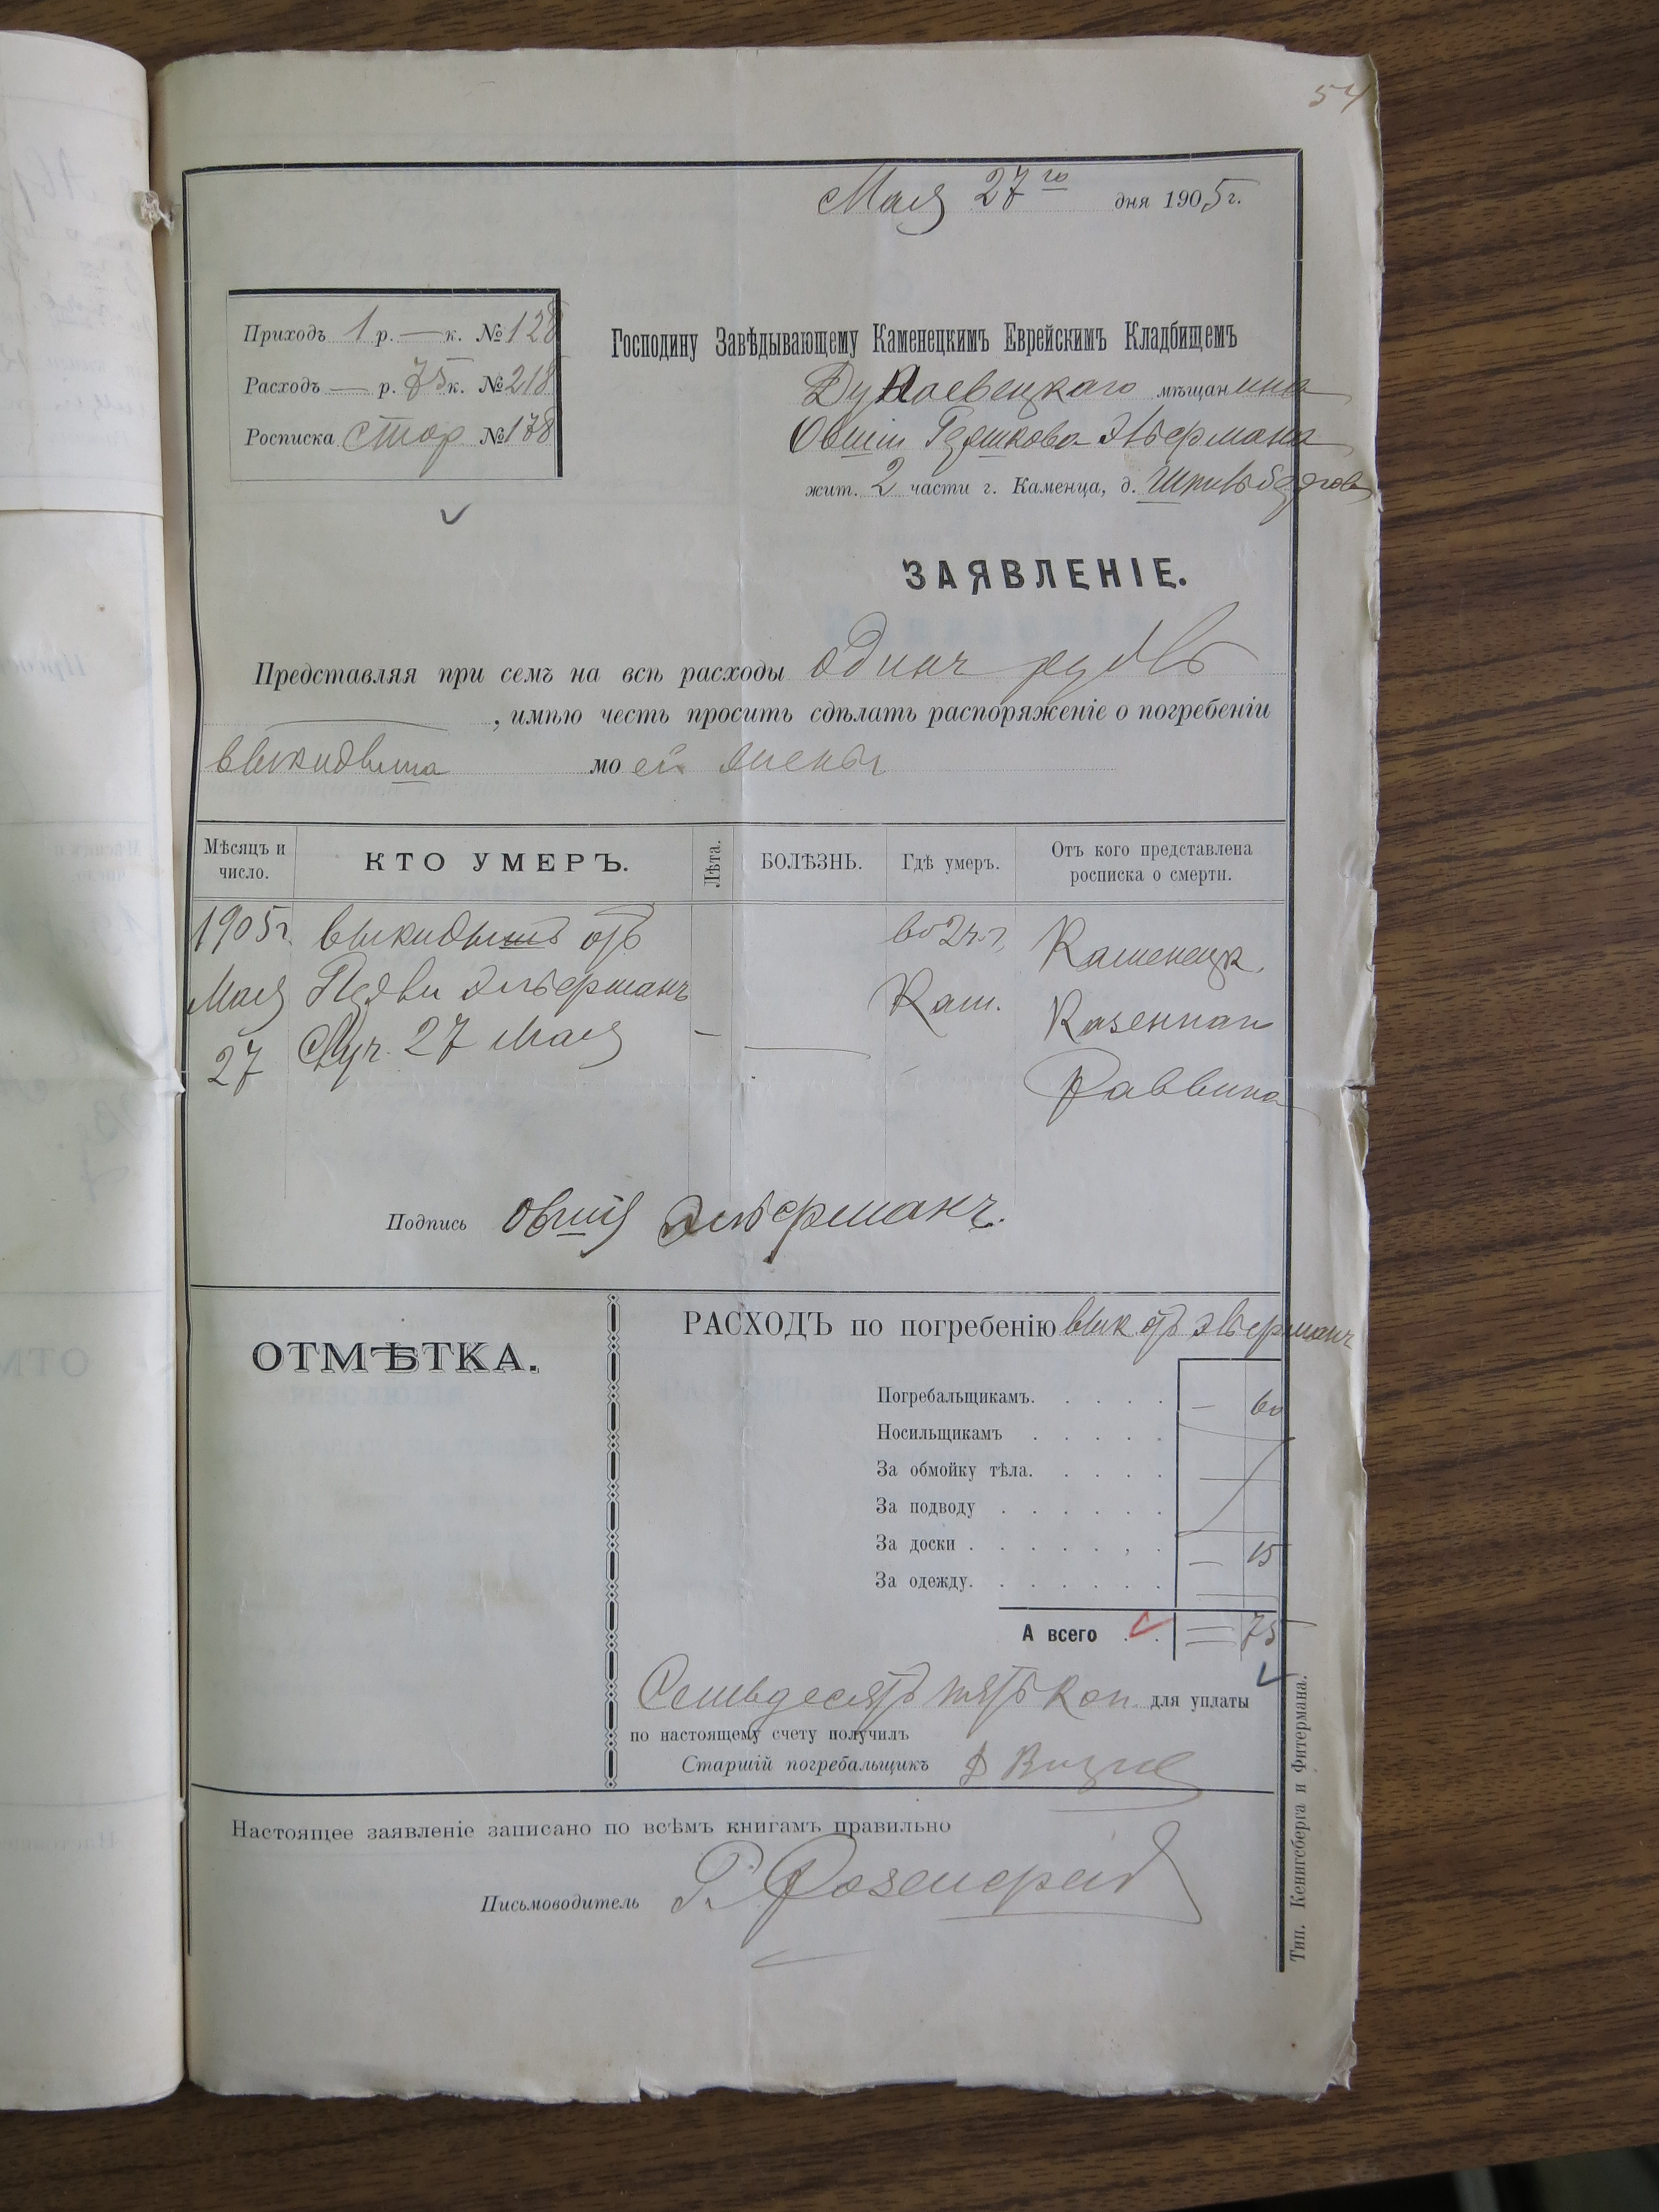 54
Мая 27го дня 1905 г.
Приходъ 1 р. — к. № 128
Расходъ — р. 75 к. № 218
Росписка стор № 178
Господину Завѣдывающему Каменецкимъ Еврейскимъ Кладбищемъ
Дунаевецкаго мѣщанина
Овшіи Гершкова Эльермана
жит. 2 части г. Каменца, д.
ЗАЯВЛЕНІЕ.
Представляя при семъ на всѣ расходы одинъ рубль
, имѣю честь просить сдѣлать распоряженіе о погребеніи
выкидыша моей жены
Мѣсяцъ и число.
КТО УМЕРЪ.
Лѣта.
БОЛѢЗНЬ.
Гдѣ умеръ.
Отъ кого представлена росписка о смерти.
1905 г. выкидышъ отъ во 2 ч. г. Каменецк.
Мая Эльерманъ Кам. Казеннаи
27 27 Мая — — Раввина
Подпись Овшія Эльерманъ.
ОТМѢТКА.
РАСХОДЪ по погребенію вык отъ Эльерманъ
Погребальщикамъ. — 60
Носильщикамъ
За обмойку тѣла.
За подводу
За доски — 15
За одежду.
А всего 75
Семьдесятъ пять коп. для уплаты
по настоящему счету получилъ
Старшій погребальщикъ
Настоящее заявленіе записано по всѣмъ книгамъ правильно
Письмоводитель
Тип. Кенигсберга и Фитермана.